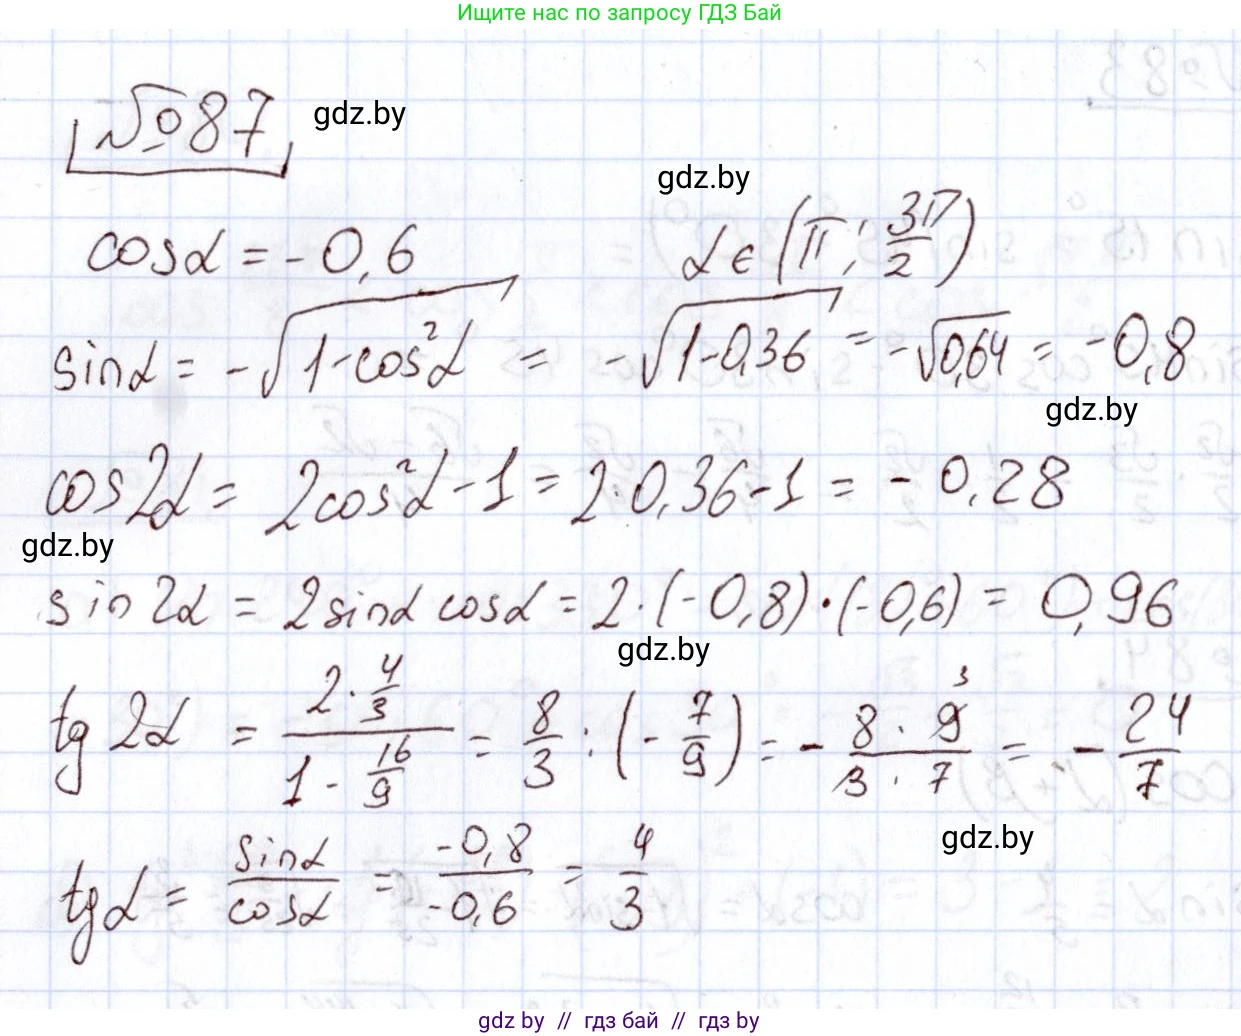 Ищите нас по запросу ГДЗ Бай
№87 gdz.by
gdz.by
cosα = -0,6 α ∈ (π; 3π/2)
sinα = -√(1-cos²α) = -√(1-0,36) = -√0,64 = -0,8
gdz.by
cos2α = 2cos²α - 1 = 2·0,36-1 = -0,28
gdz.by
sin2α = 2sinα cosα = 2·(-0,8)·(-0,6) = 0,96
gdz.by
tg 2α = (2·4/3)/(1 - 16/9) = 8/3 : (-7/9) = - (8·9 3)/(3·7) = - 24/7
gdz.by
tgα = sinα/cosα = -0,8/-0,6 = 4/3
gdz by // гдз бай // гдз by